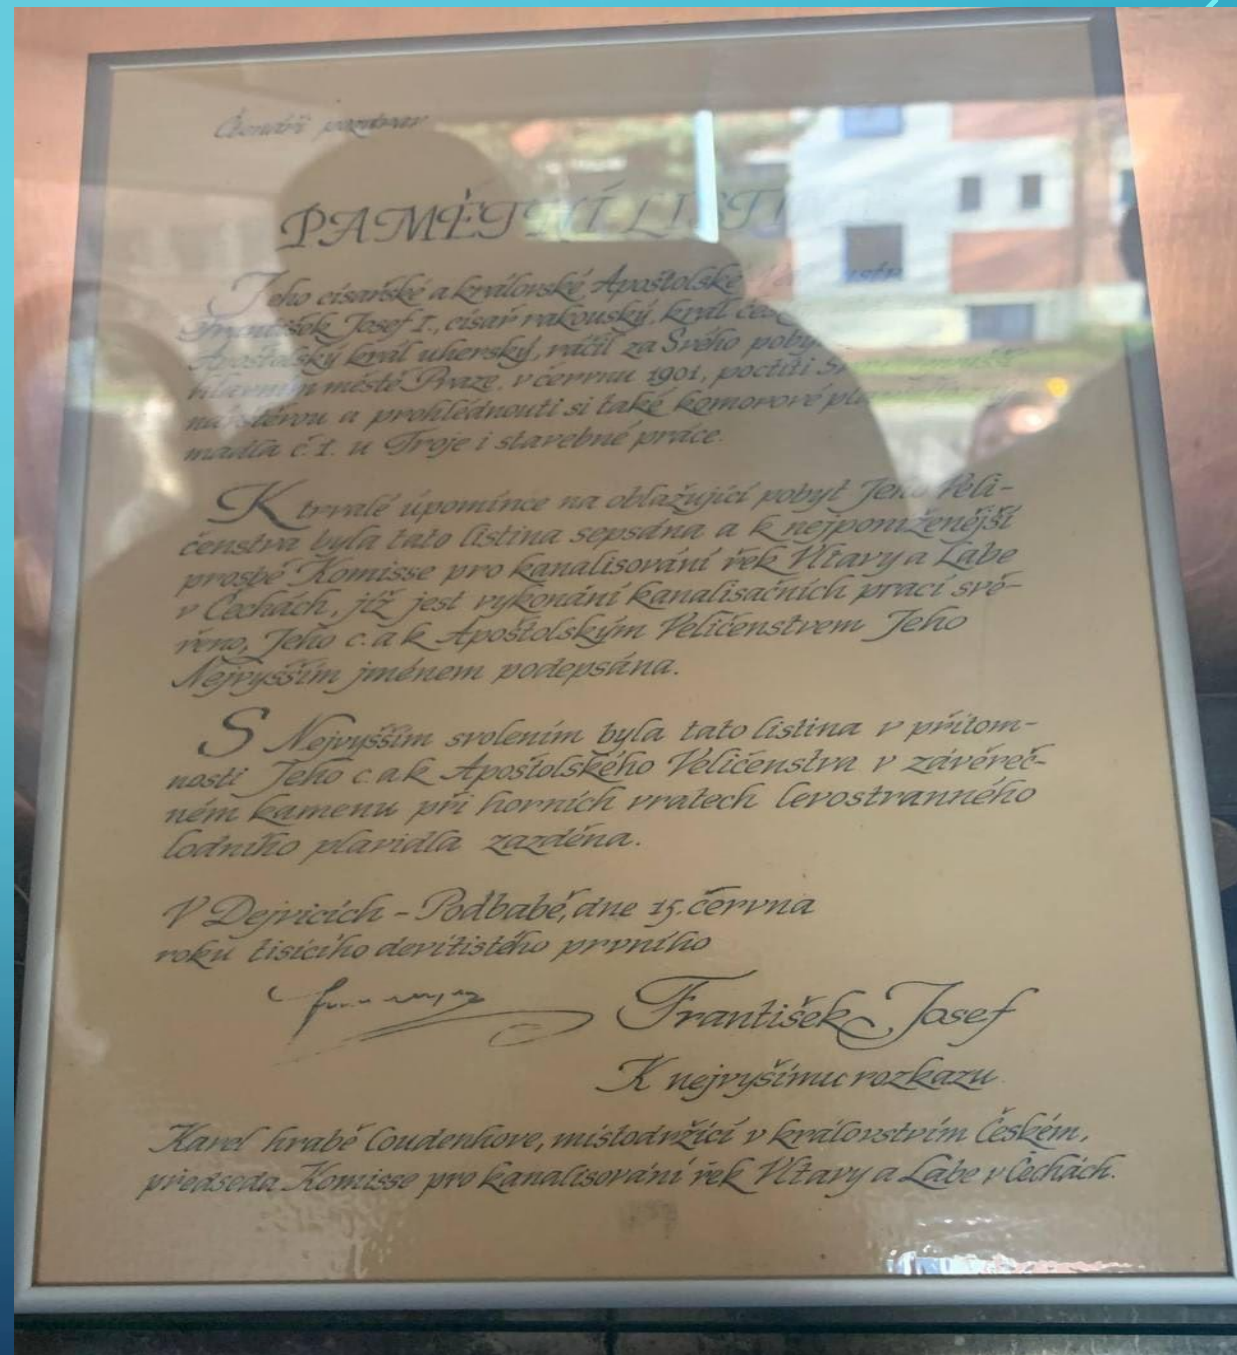 Čtenáři pozdrav
PAMĚTNÍ LIST
Jeho císařské a královské Apoštolské
František Josef I., císař rakouský, král
Apoštolský král uherský, ráčil za Svého
hlavním městě Praze, v červnu 1901, poctíti
návštěvou a prohlédnouti si také komorové
madla č. 1. u Troje i stavebné práce.
K trvalé úpomínce na oblažující pobyt Jeho Veli-
čenstva byla tato listina sepsána a k nejponíženější
prosbě Komisse pro kanalisování řek Vltavy a Labe
v Čechách, jíž jest vykonání kanalisačních prací svě-
řeno, Jeho c. a k. Apoštolským Veličenstvem Jeho
Nejvyšším jménem podepsána.
S Nejvyšším svolením byla tato listina v přítom-
nosti Jeho c. a k. Apoštolského Veličenstva v závěreč-
ném kamenu při horních vratech levostranného
lodního plavidla zazděna.
V Dejvicích - Podbabě, dne 15. června
roku tisícího devítistého prvního
František Josef
K nejvyšímu rozkazu
Karel hrabě Coudenhove, místodržící v královstvím Českém,
předseda Komisse pro kanalisování řek Vltavy a Labe v Čechách.